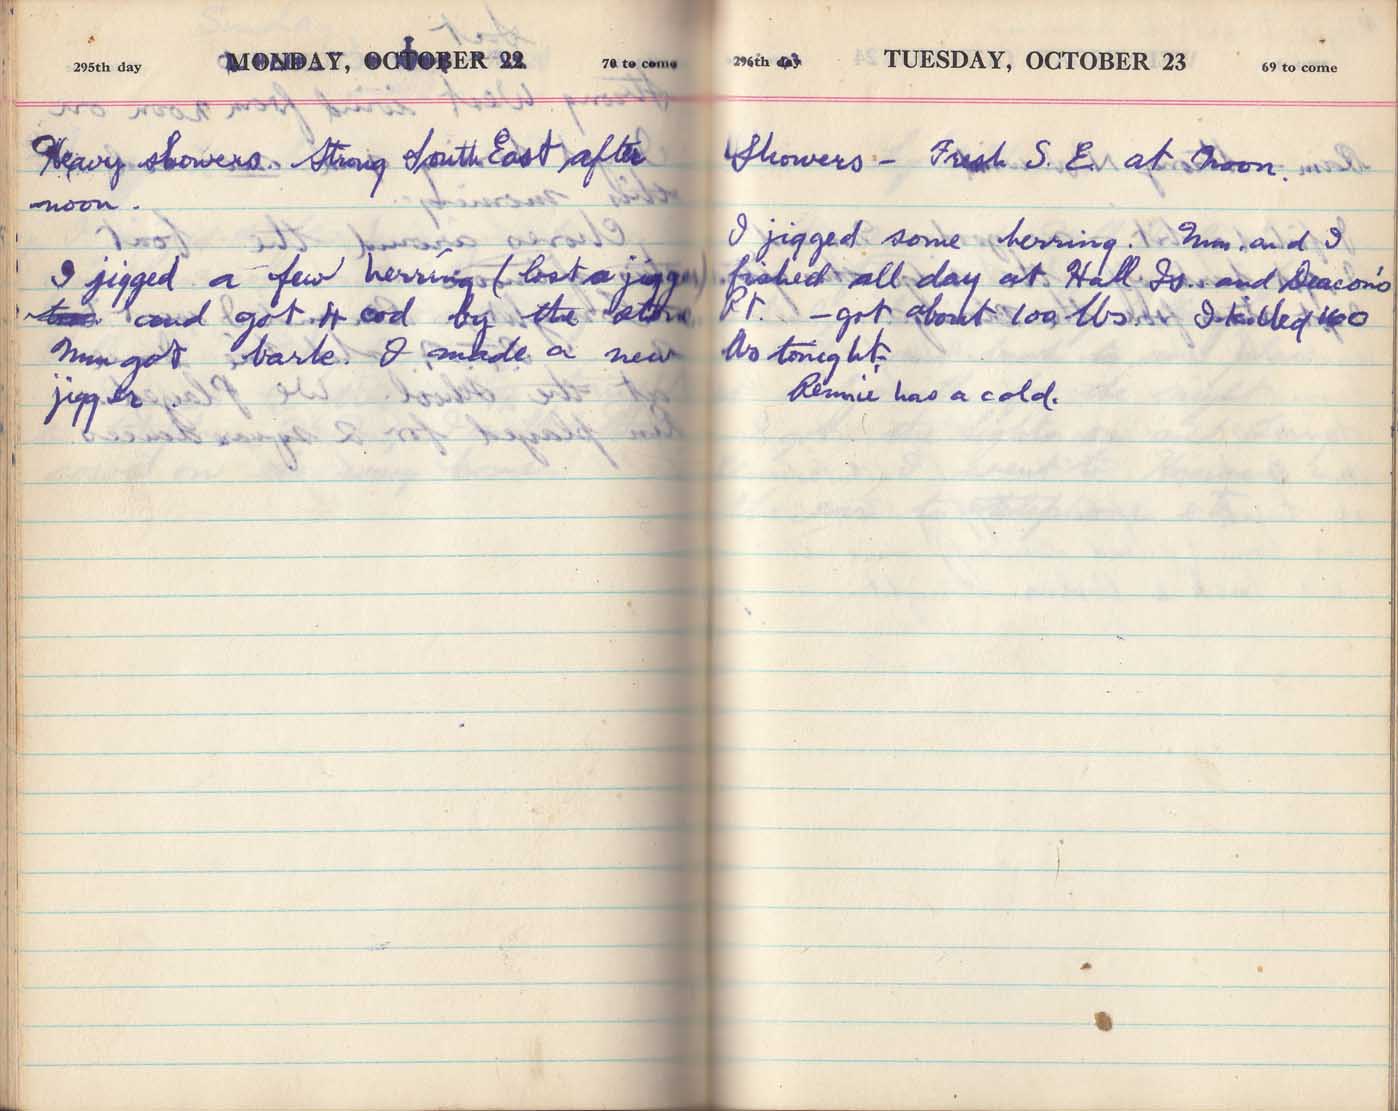 295th day MONDAY, OCTOBER 22 70 to come
Heavy showers. Strong South East after
noon.
I jigged a few herring (lost a jigger)
and got 4 cod by the store
Mum got bark. I made a new
jigger.
296th day TUESDAY, OCTOBER 23 69 to come
Showers - Fresh S. E. at Noon.
I jigged some herring. Mum and I
fished all day at Hall Is. and Deacon's
Pt. - got about 100 lbs. I
lbs tonight.
Rennie has a cold.